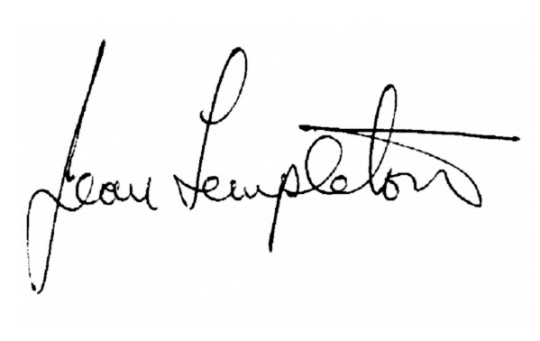 Jean Templeton